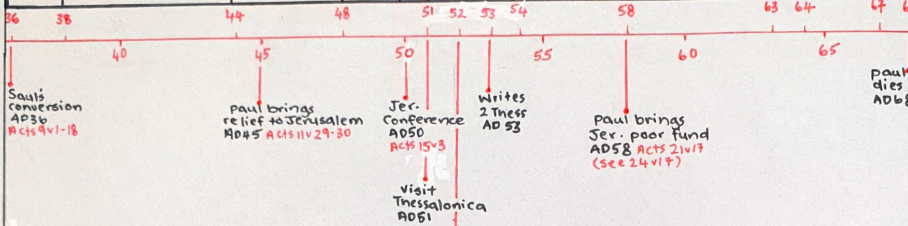 36 38 44 48 51 52 53 54 58 63 64 67
40 45 50 55 60 65
Saul's
conversion
AD36
Acts 9v1-18
Paul brings
relief to Jerusalem
AD45 Acts 11v29-30
Jer.
Conference
AD50
Acts 15v3
Visit
Thessalonica
AD51
Writes
2 Thess
AD 53
Paul brings
Jer. poor fund
AD58 Acts 21v17
(see 24v17)
Paul
dies
AD6